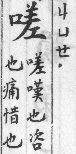 ㄐㄩㄝ.
嗟
嗟嘆也咨
也痛惜也